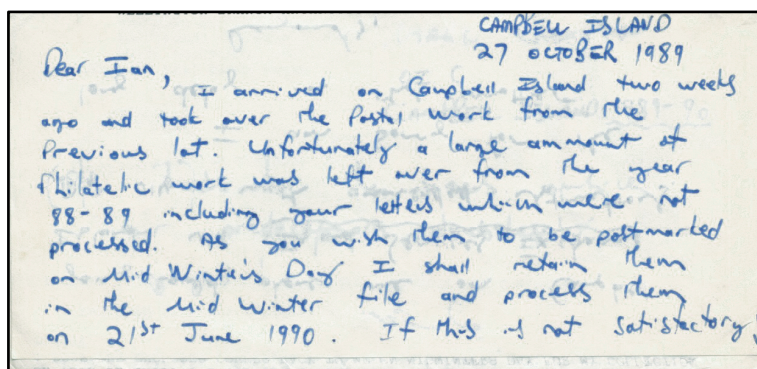 CAMPBELL ISLAND
27 OCTOBER 1989
Dear Ian,
I arrived on Campbell Island two weeks
ago and took over the Postal work from the
Previous lot. Unfortunately a large ammount of
Philatelic work was left over from the year
88-89 including your letters which were not
processed. As you wish them to be postmarked
on Mid Winter's Day I shall retain them
in the Mid Winter file and process them
on 21st June 1990. If this is not satisfactory,